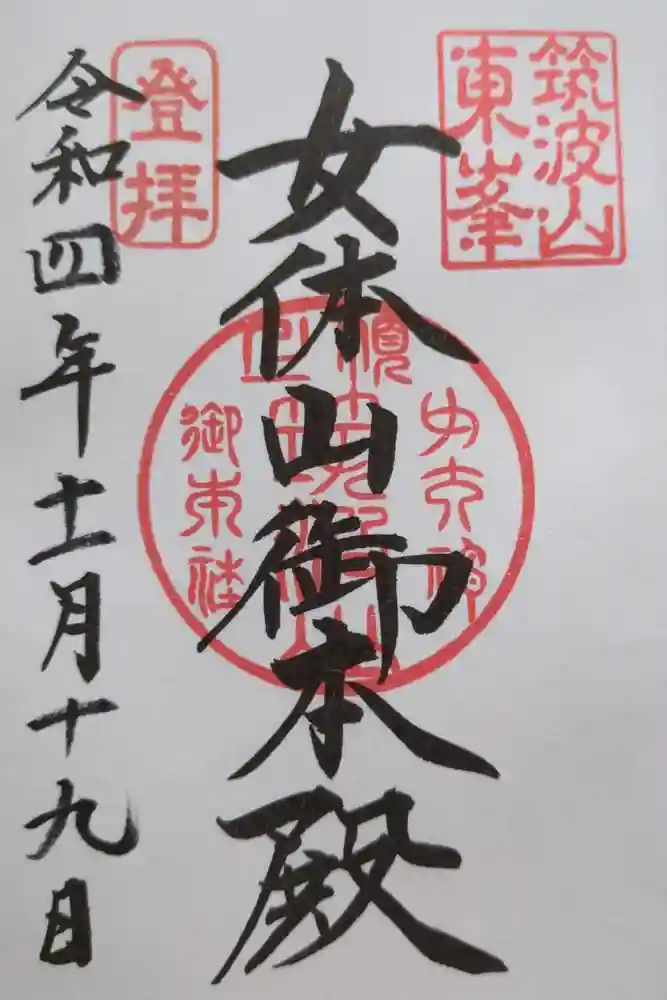 筑波山
東峯
女体山御本殿
登拝
令和四年十一月十九日